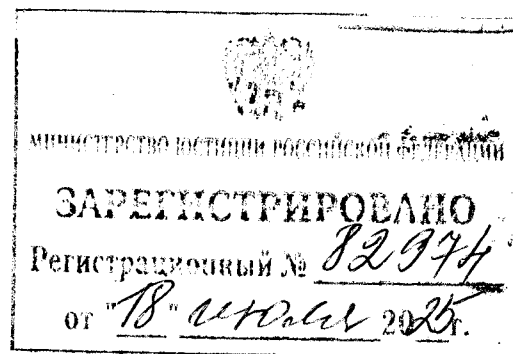 МИНИСТЕРСТВО ЮСТИЦИИ РОССИЙСКОЙ ФЕДЕРАЦИИ
ЗАРЕГИСТРИРОВАНО
Регистрационный № 82974
от "18" июля 2025г.